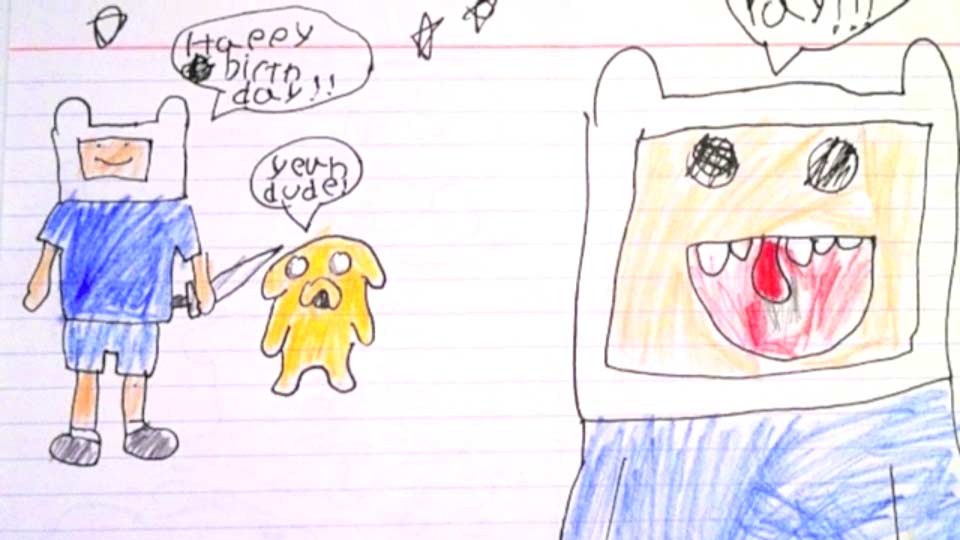 Happy
birth
day!!
yeuh
dude!